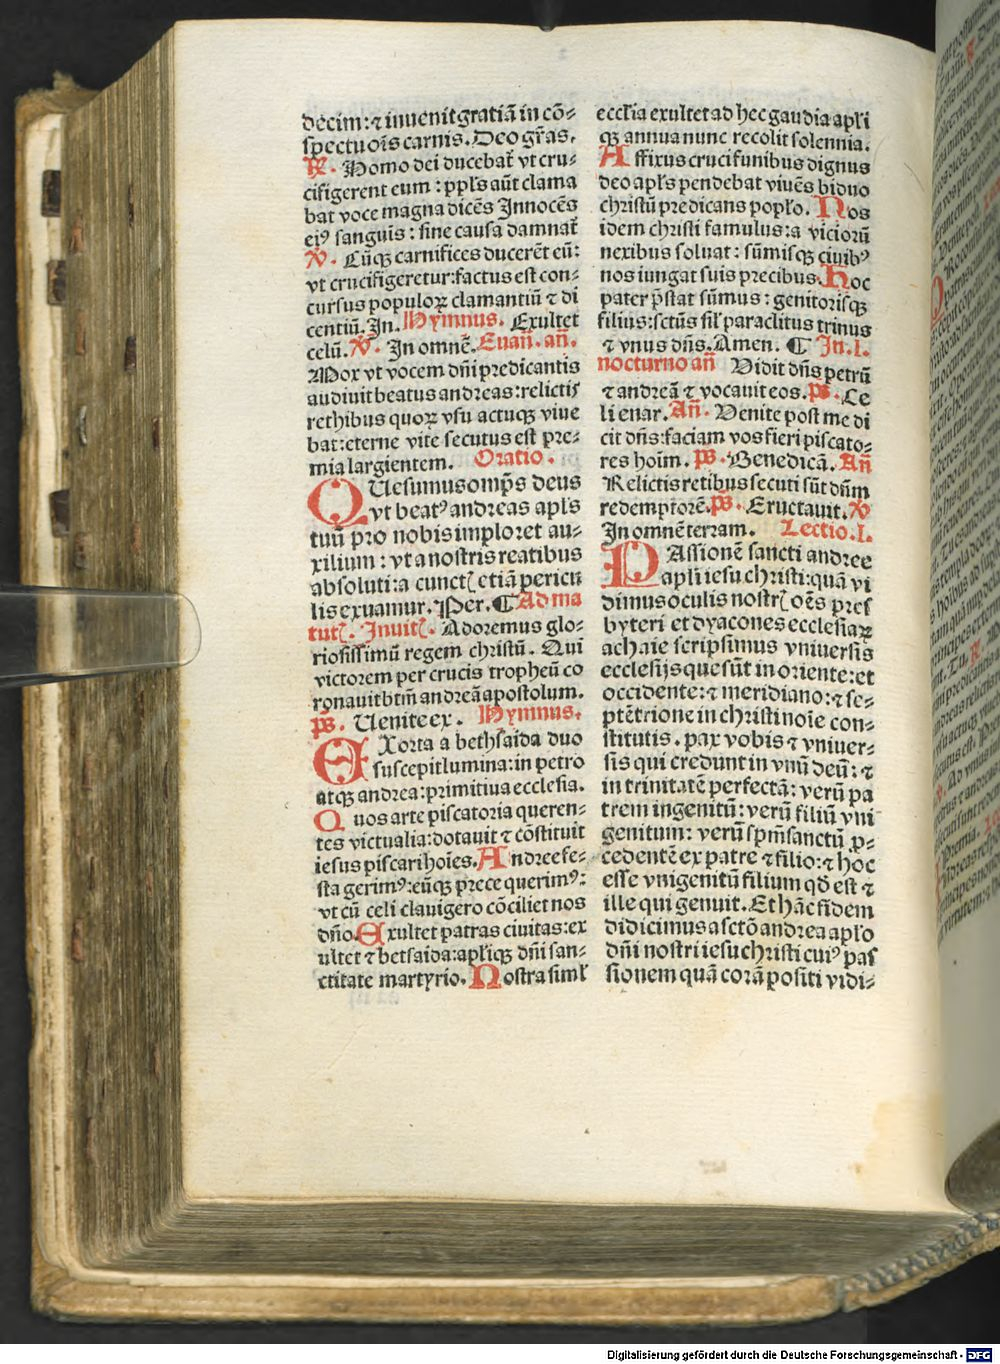 decim: ⁊ inuenit gratiā in cō-
spectu oīs carnis. Deo grās.
℟. Homo dei ducebat᷑ vt cru-
cifigerent eum: ppl's aūt clama
bat voce magna dicēs Innocēs
eiꝰ sanguis: sine causa damnat᷑
℣. Cūqꝫ carnifices ducerēt eū:
vt crucifigeretur: factus est con-
cursus populoꝝ clamantiū ⁊ di
centiū. In. Hymnus. Exultet
celū. ℣. In omnē. Euan̄. an̄.
Mox vt vocem dn̄i predicantis
audiuit beatus andreas: relictis
rethibus quoꝝ vsu actuqꝫ viue
bat: eterne vite secutus est pre-
mia largientem. Oratio.
QUesumus omp̄s deus
vt beatꝰ andreas apl's
tuū pro nobis imploret au-
xilium: vt a nostris reatibus
absoluti: a cunctꝭ etiā pericu
lis exuamur. Per. ¶ Ad ma
tutꝭ. Inuitꝭ. Adoremus glo-
riosissimū regem christū. Qui
victorem per crucis tropheū co
ronauit btm̄ andreā apostolum.
ps̄. Uenite ex. Hymnus.
EXorta a bethsaida duo
suscepit lumina: in petro
atqꝫ andrea: primitiua ecclesia.
Quos arte piscatoria queren-
tes victualia: dotauit ⁊ cōstituit
iesus piscari hoīes. Andree fe-
sta gerimꝰ: eūqꝫ prece querimꝰ:
vt cū celi clauigero cōciliet nos
dn̄o. Exultet patras ciuitas: ex
ultet ⁊ betsaida: apl'icqꝫ dn̄i san-
ctitate martyrio. Nostra siml'
eccl'ia exultet ad hec gaudia apl'i
qꝫ annua nunc recolit solennia.
Affixus cruci funibus dignus
deo apl's pendebat viuēs biduo
christū predicans popl'o. Nos
idem christi famulus: a viciorū
nexibus soluat: sūmisqꝫ ciuibꝰ
nos iungat suis precibus. Hoc
pater p̄stat sūmus: genitorisqꝫ
filius: sctūs sil' paraclitus trinus
⁊ vnus dn̄s. Amen. ¶ In. I.
nocturno an̄ Vidit dn̄s petrū
⁊ andreā ⁊ vocauit eos. ps̄. Ce
li enar. An̄. Venite post me di
cit dn̄s: faciam vos fieri piscato-
res hoīm. ps̄. Benedicā. An̄
Relictis retibus secuti sūt dn̄m
redemptorē. ps̄. Eructauit. ℣
In omnē terram. Lectio. I.
PAssionē sancti andree
apl'i iesu christi: quā vi
dimus oculis nostrꝭ oēs pres
byteri et dyacones ecclesiaꝝ
achaie scripsimus vniuersis
ecclesijs que sūt in oriente: et
occidente: ⁊ meridiano: ⁊ se-
ptētrione in christi noīe con-
stitutis. pax vobis ⁊ vniuer-
sis qui credunt in vnū deū: ⁊
in trinitatē perfectā: verū pa
trem ingenitū: verū filiū vni
genitum: verū spm̄ sanctū ꝓ-
cedentē ex patre ⁊ filio: ⁊ hoc
esse vnigenitū filium qd̄ est ⁊
ille qui genuit. Et hāc fidem
didicimus a sctō andrea apl'o
dn̄i nostri iesu christi cuiꝰ pas
sionem quā corā positi vidi-
Digitalisierung gefördert durch die Deutsche Forschungsgemeinschaft - DFG